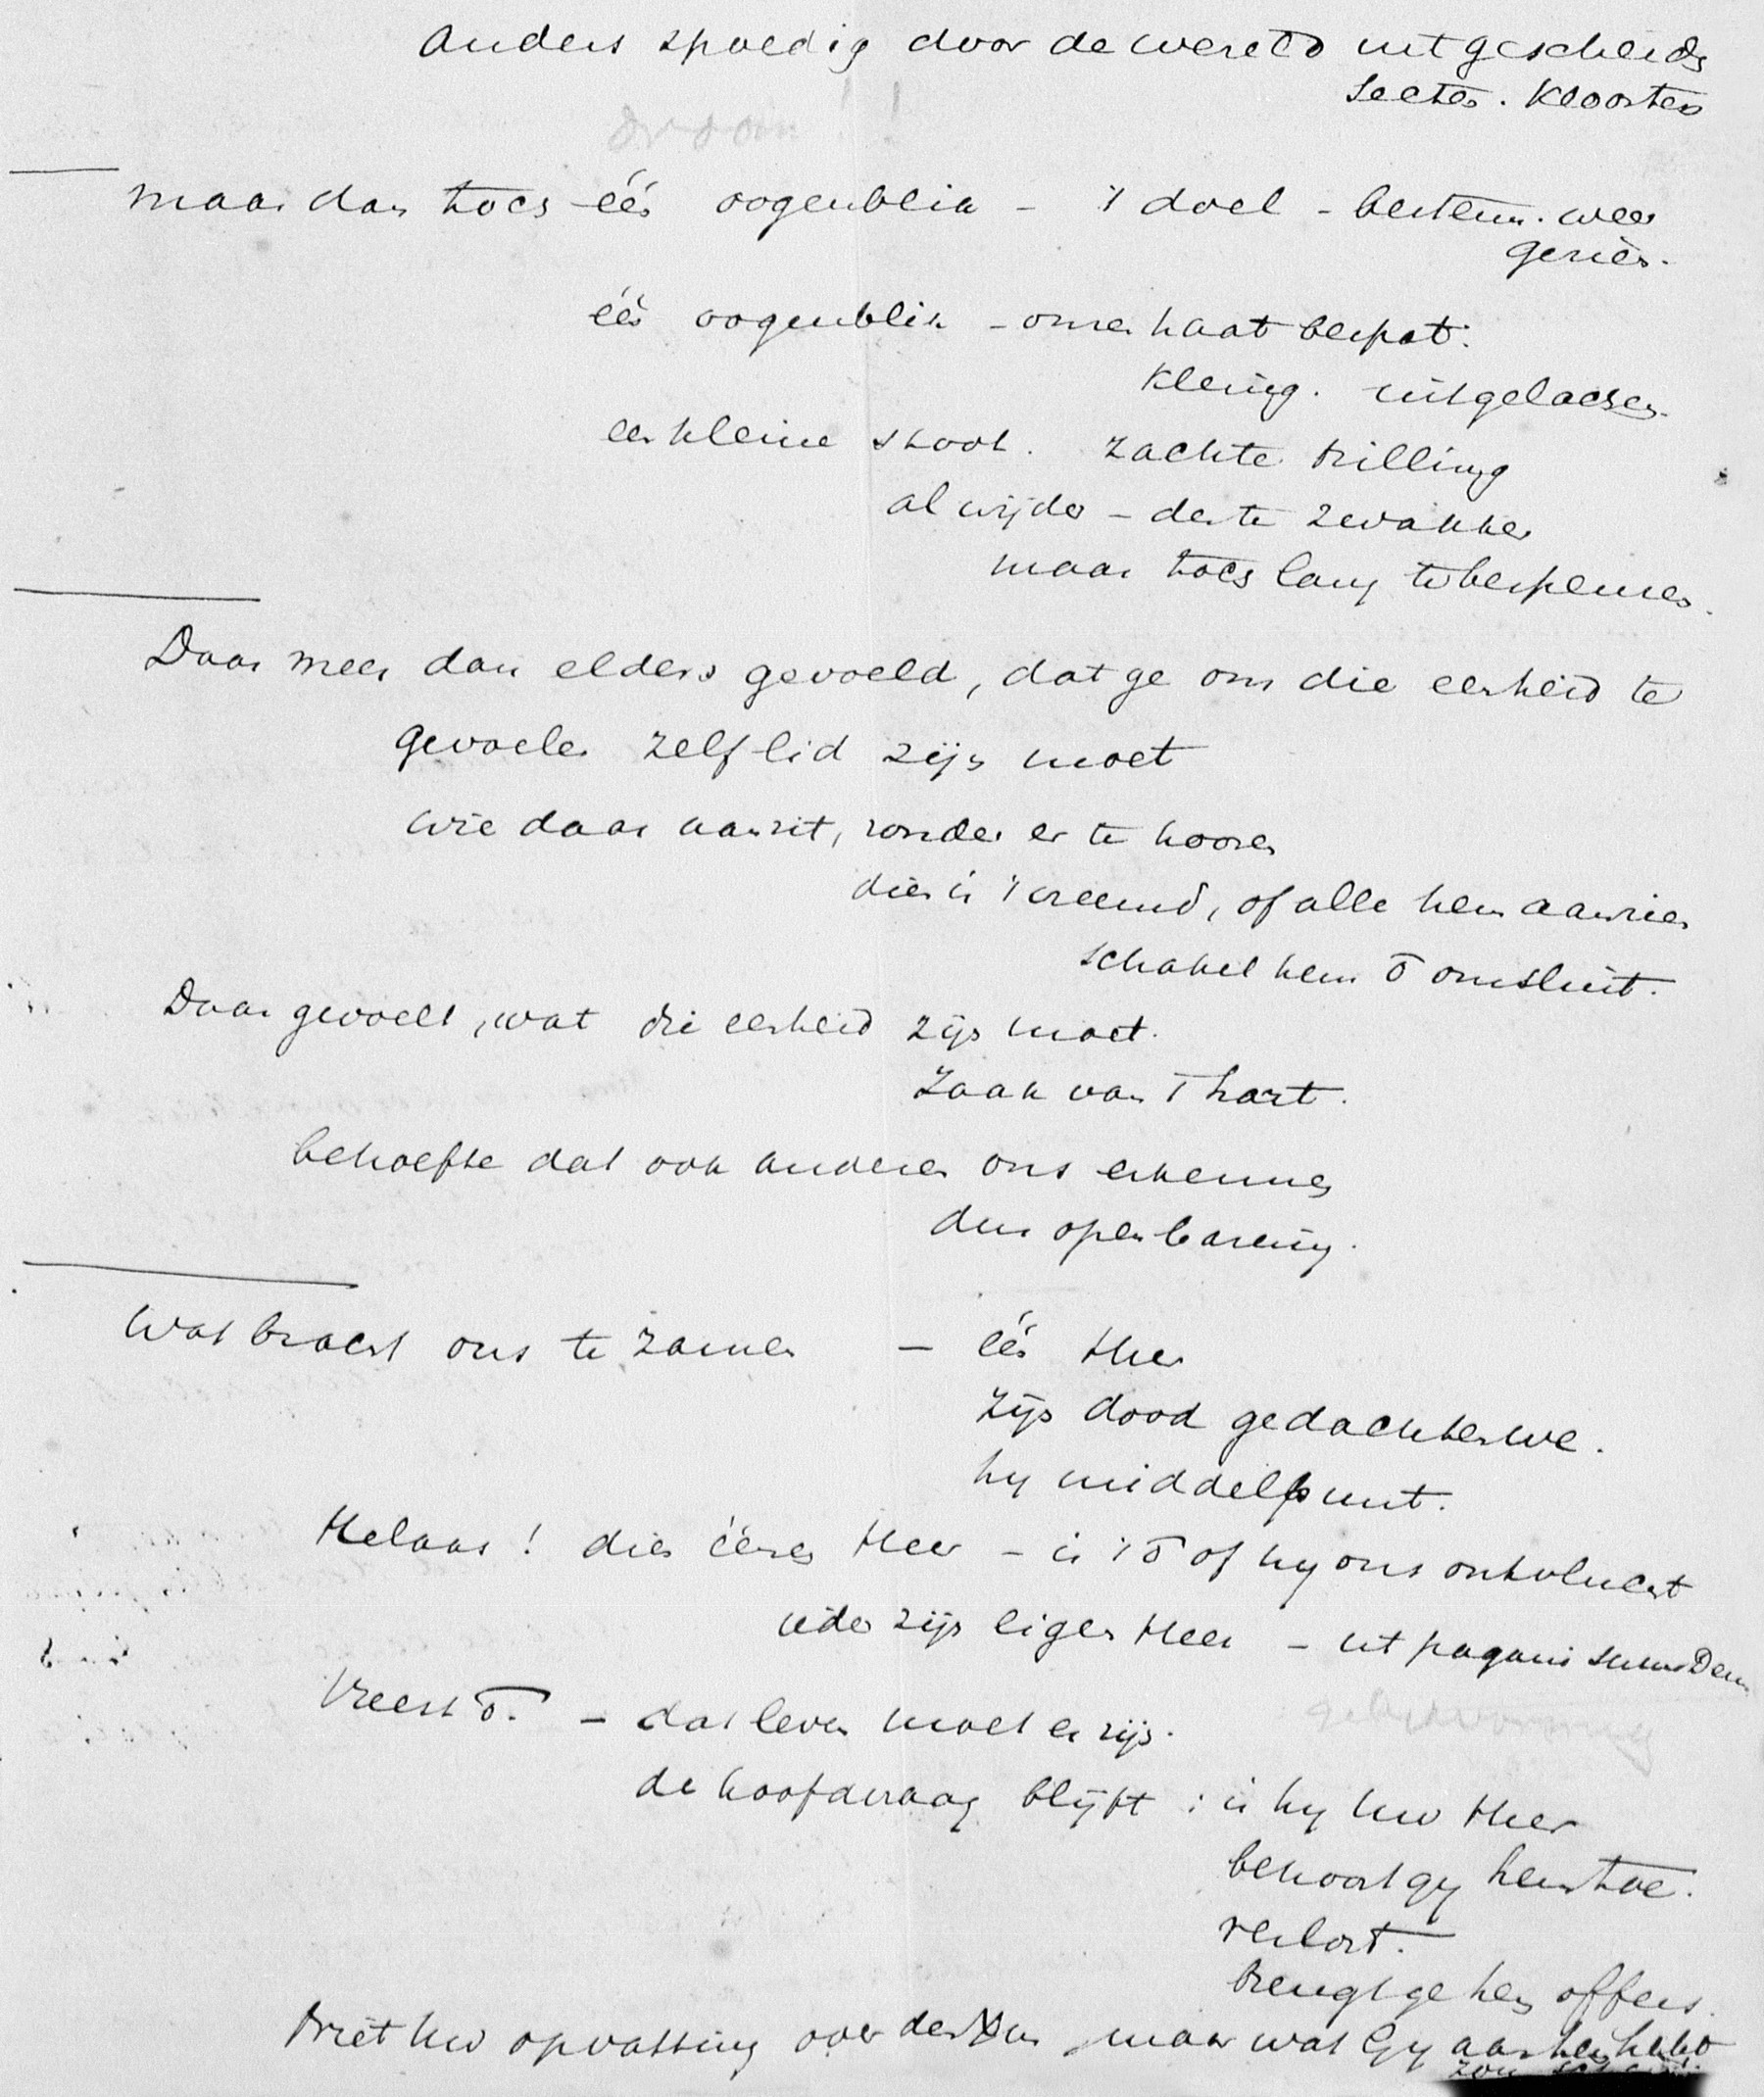 Anders spoedig door de wereld uitgescheiden
Secten. Kloosters
droom !!
maar dan toch één oogenblik – 't doel – bestem. weer
gezien.
één oogenblik – onze haat bespot.
Kleing. uitgelachen.
een kleine schok. zachte trilling
al wijder – des te zwakker
maar toch lang te bespeuren.
Daar meer dan elders gevoeld, dat ge om die eenheid te
gevoelen zelf lid zijn moet
wie daar aanzit, zonder er te hooren
dien is 't vreemd, of alle hem aanzien
schakel hem o omsluit.
Daar gevoelt, wat die eenheid zijn moet.
Zaak van 't hart.
behoefte dat ook anderen ons erkennen
dus openbaring.
Wat bracht ons te zamen – één Heer
zijn dood gedachten we.
hy middelpunt.
Helaas! dien éénen Heer – is 't o of hy ons ontvlucht
ieder zijn eigen Heer – uit paganismus Deus
Vreest o. – dat leven moet er zijn.
de hoofdvraag blijft : is hy uw Heer
behoort gy hem toe.
verlost.
brengt ge hem offers.
niet uw opvatting over den Heer, maar wat Gy aan hem hebt